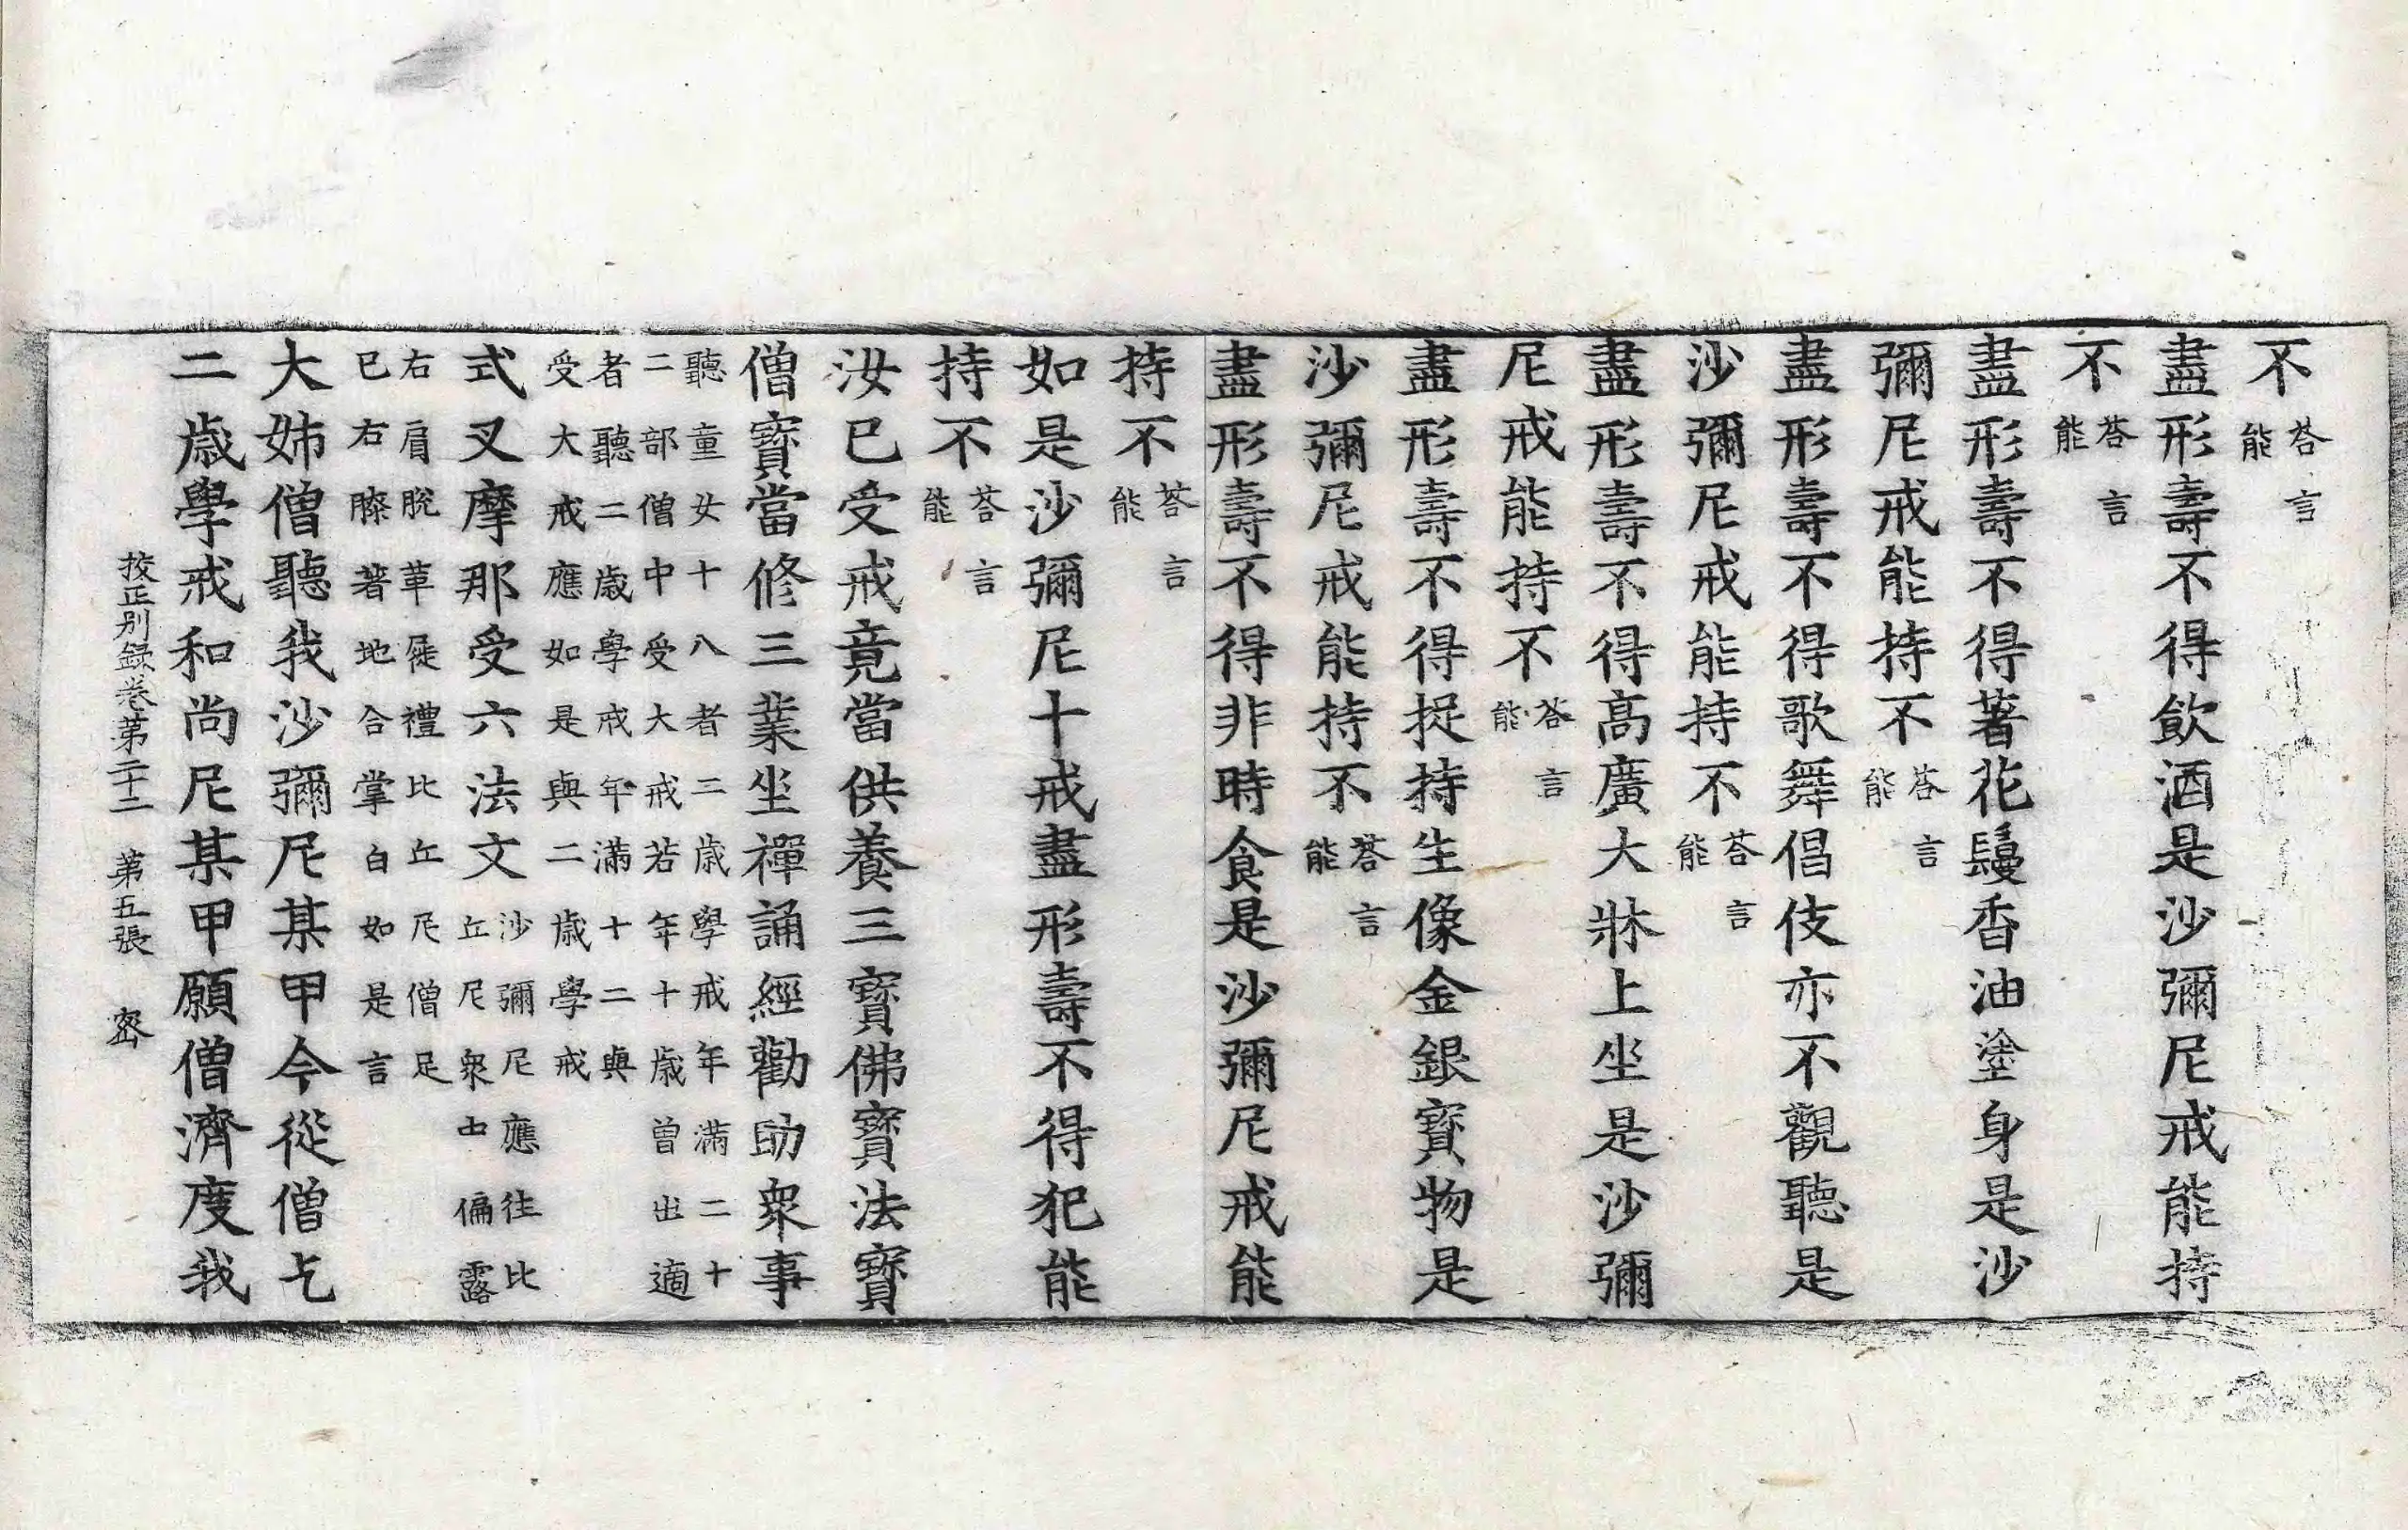 不答言能
盡形壽不得飲酒是沙彌尼戒能持
不答言能
盡形壽不得著花鬘香油塗身是沙
彌尼戒能持不答言能
盡形壽不得歌舞倡伎亦不觀聽是
沙彌尼戒能持不答言能
盡形壽不得髙廣大牀上坐是沙彌
尼戒能持不答言能
盡形壽不得捉持生像金銀寶物是
沙彌尼戒能持不答言能
盡形壽不得非時食是沙彌尼戒能
持不答言能
如是沙彌尼十戒盡形壽不得犯能
持不答言能
汝已受戒竟當供養三寶佛寶法寶
僧寶當修三業坐禪誦經勸助衆事
聽童女十八者二歲學戒年滿二十
二部僧中受大戒若年十歲曾出適
者聽二歲學戒年滿十二與
受大戒應如是與二歲學戒
式叉摩那受六法文沙彌尼應往比丘尼衆中偏露
右肩脫革屣禮比丘尼僧足
已右膝著地合掌白如是言
大姊僧聽我沙彌尼某甲今從僧乞
二歲學戒和尚尼某甲願僧濟度我
挍正別録卷第二十二 第五張 密